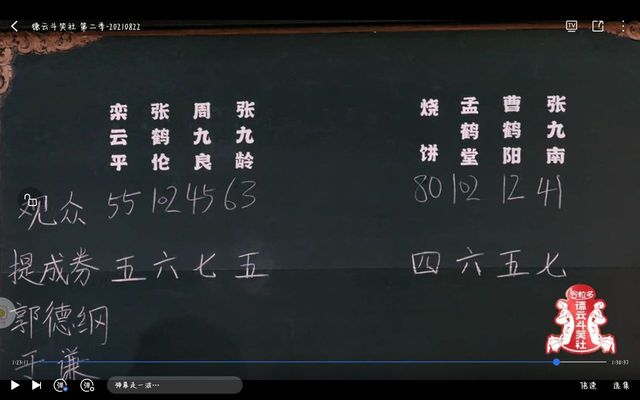 德云斗笑社 第二季-20210822
栾云平 张鹤伦 周九良 张九龄 烧饼 孟鹤堂 曹鹤阳 张九南
观众 55 102 45 63 80 102 12 41
提成券 五 六 七 五 四 六 五 七
郭德纲
于谦
谷粒多
德云斗笑社
1:23:11 1:30:37
弹 弹 弹幕走一波… 倍速 选集